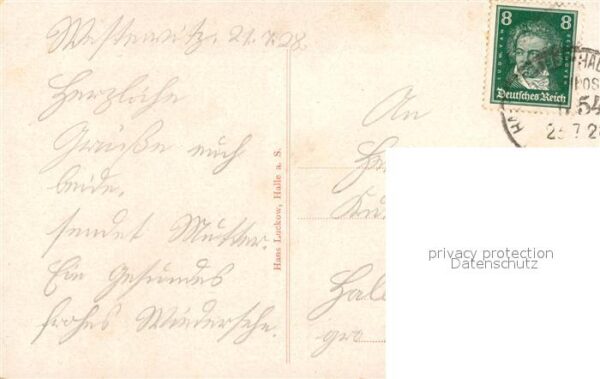 Westewitz, 21.7.28.
Herzliche
Grüße euch
beide,
sendet Mutter.
Ein Gesundes
frohes Wiedersehn.
Hans Luckow, Halle a. S.
An
8 8
LUDWIG VAN BEETHOVEN
Deutsches Reich
54
privacy protection
Datenschutz